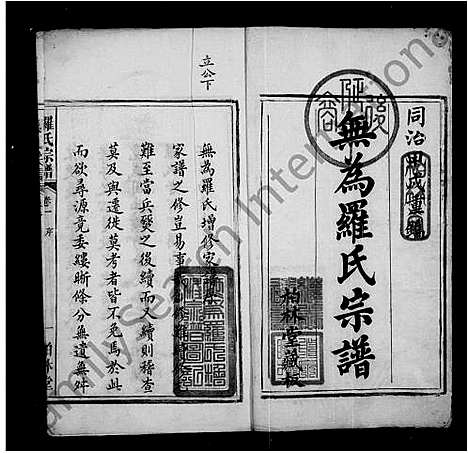 同治
無為羅氏宗譜
柏林堂藏板
立公下
無為羅氏增修家
家譜之修豈易事
難至當兵燹之後續而又續則稽查
莫及與遷徙莫考者皆不免焉於此
而欲尋源竟委縷晰條分無遺無舛
羅氏宗譜
卷一
序
柏林堂
FamilySearch International